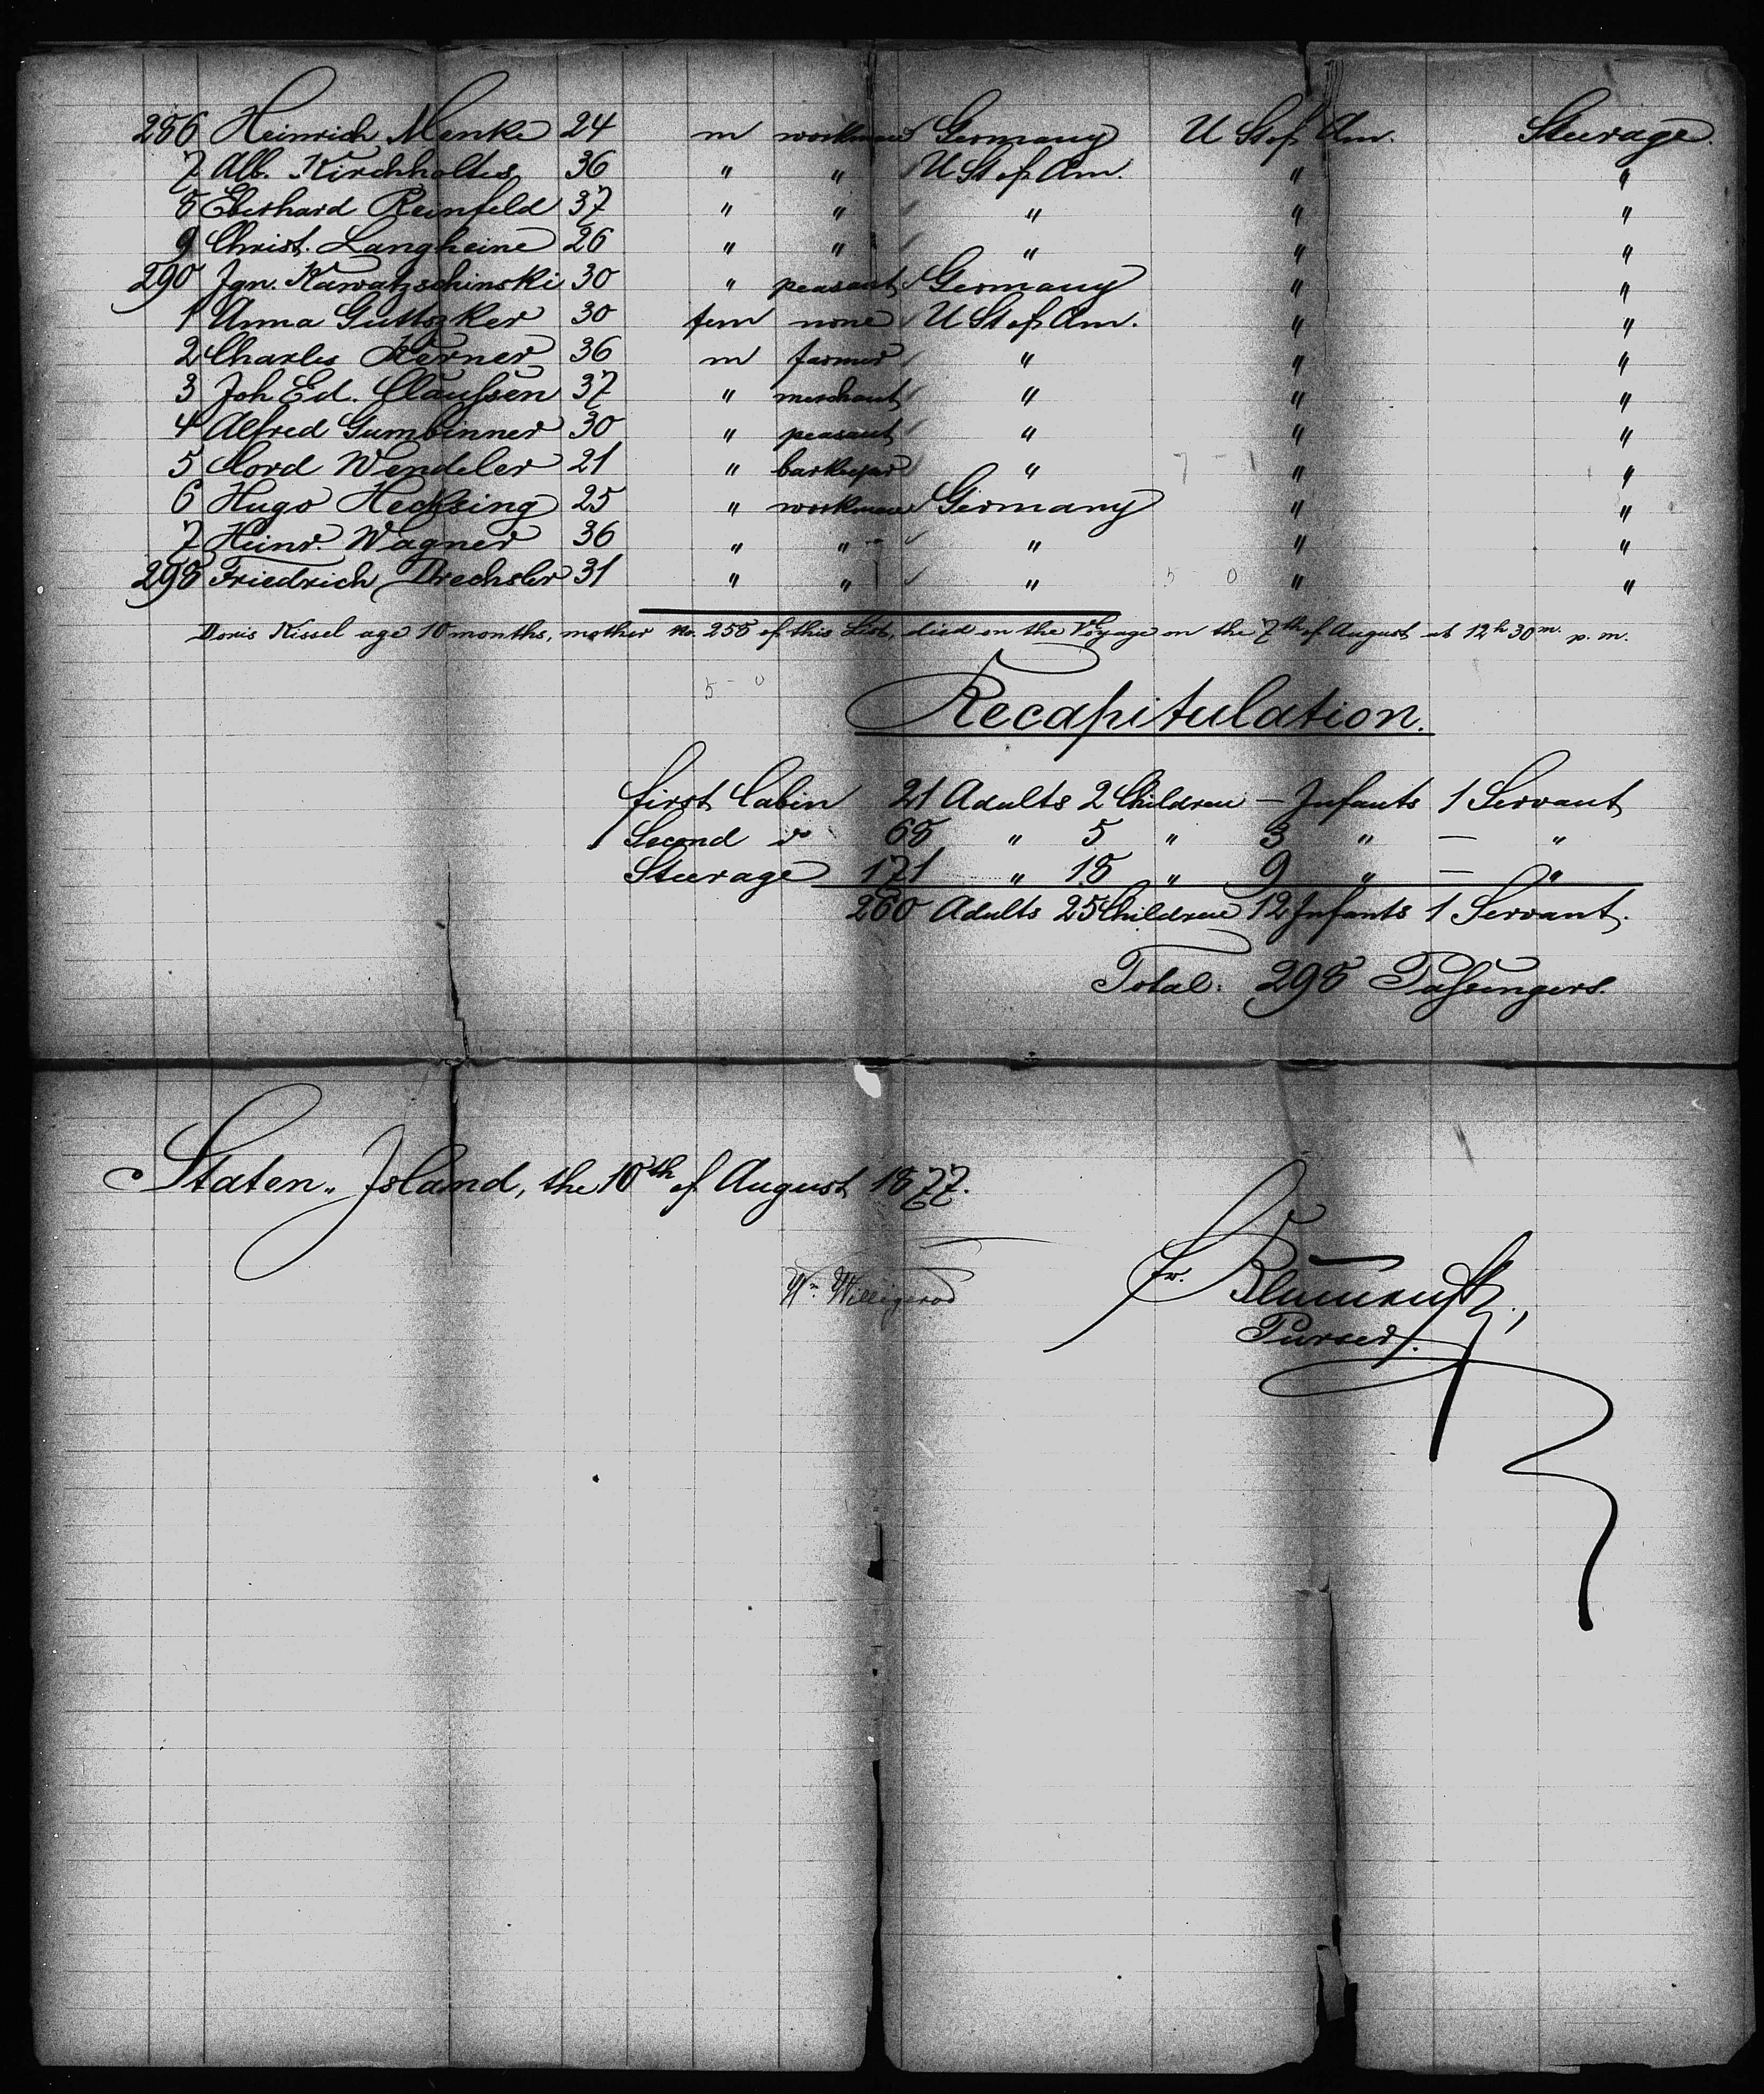 286 Heinrich Menke 24 m workman Germany U St of Am. Steerage.
7 Alb. Kirchholtes 36 " " U St of Am. " "
8 Eberhard Reinfeld 37 " " " " "
9 Christ. Langheine 26 " " " " "
290 Ign. Kawatzschinski 30 " peasant Germany " "
1 Anna 30 fem none U St of Am. " "
2 Charles Kerner 36 m farmer " " "
3 Joh Ed. Claussen 37 " merchant " " "
4 Alfred Gumbinner 30 " peasant " " "
5 Cord Wendeler 21 " barkeeper " " "
6 Hugo Hechsing 25 " workman Germany " "
7 Heinr. Wagner 36 " " " " "
298 Friedrich Drechsler 31 " " " " "
Doris Kissel age 10 months, mother No. 258 of this List, died on the Voyage on the 7th of August at 12h 30m. p. m.
Recapitulation.
first Cabin 21 Adults 2 Children — Infants 1 Servant
Second do 68 " 5 " 3 " — "
Steerage 171 " 18 " 9 " — "
260 Adults 25 Children 12 Infants 1 Servant.
Total: 298 Passengers.
Staten Island, the 10th of August 1877.
Wm. Willigerod
Purser.